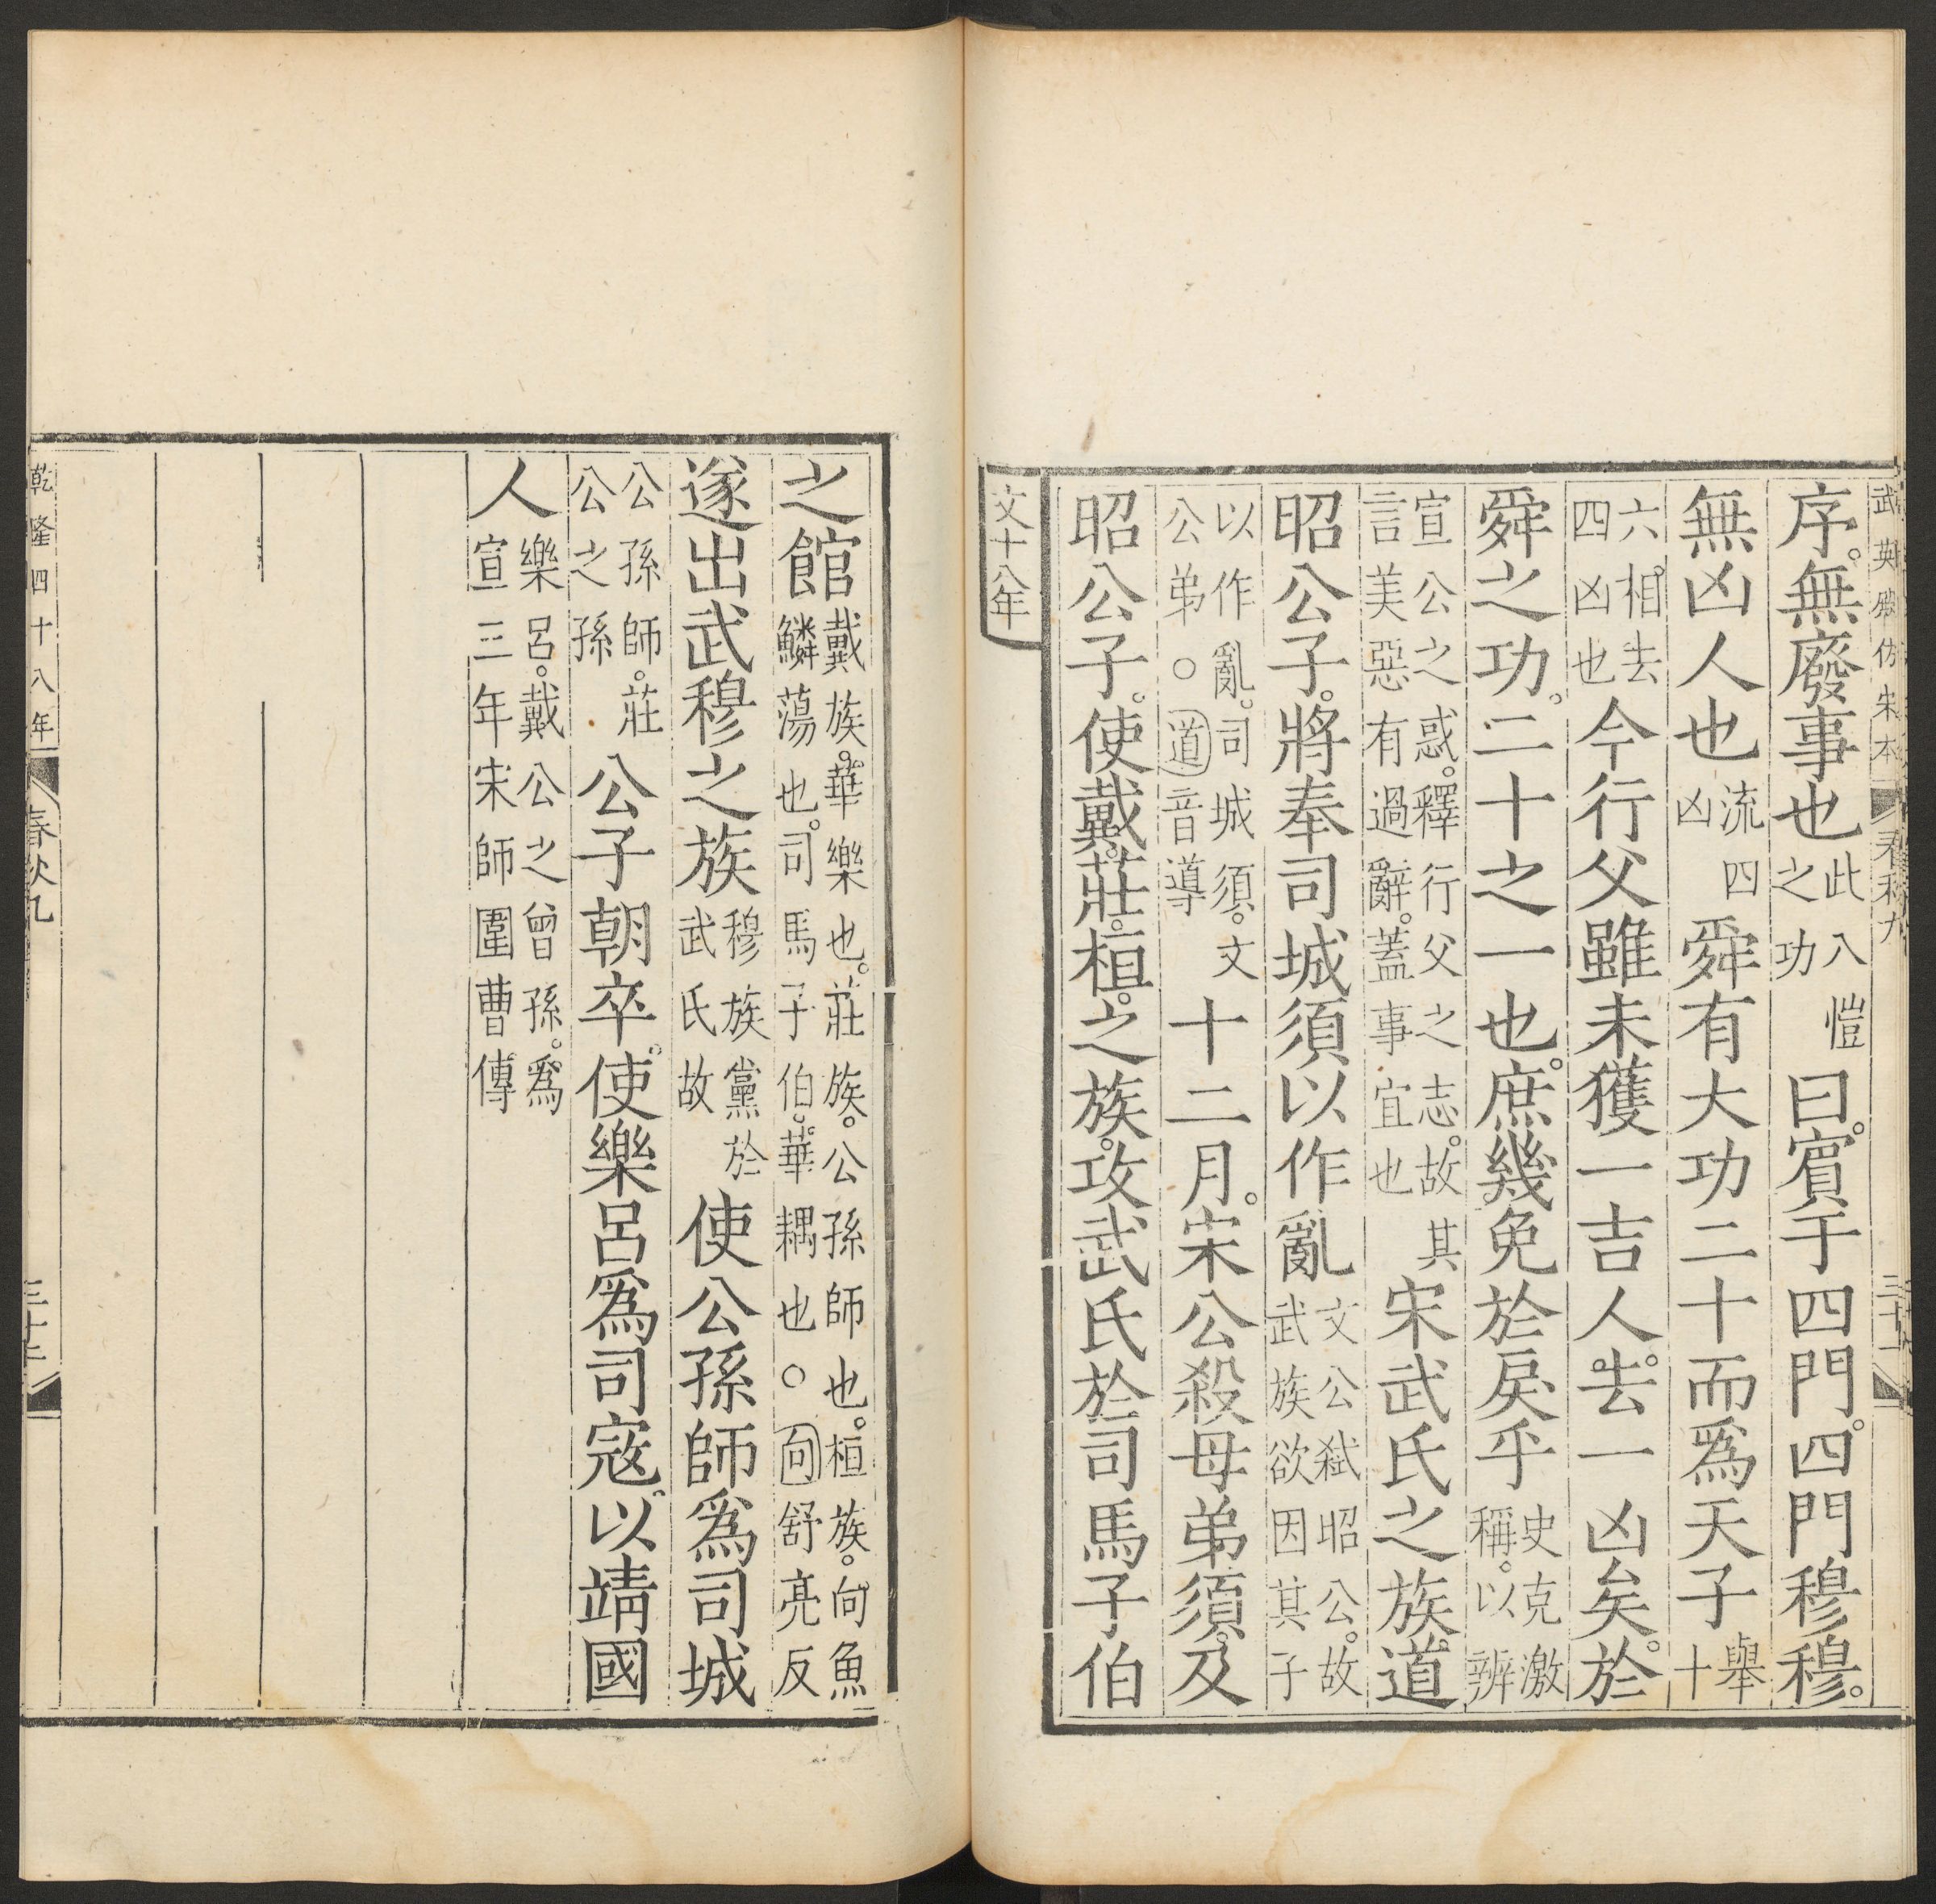 武英殿仿宋本
春秋九
三十一
序。無廢事也此八愷之功曰。賓于四門。四門穆穆。
無凶人也流四凶舜有大功二十而爲天子舉十
六相。去四凶也今行父雖未獲一吉人。去一凶矣。於
舜之功。二十之一也。庶幾免於戾乎史克激稱。以辨
宣公之惑。釋行父之志。故其言美惡有過辭。蓋事宜也宋武氏之族。道
昭公子。將奉司城須以作亂文公弒昭公。故武族欲因其子
以作亂。司城須。文公弟○道音導十二月。宋公殺母弟須。及
昭公子。使戴。莊。桓。之族。攻武氏於司馬子伯
文十八年
之館戴族。華樂也。莊族。公孫師也。桓族。向魚鱗蕩也。司馬子伯。華耦也○向舒亮反
遂出武穆之族穆族黨於武氏故使公孫師爲司城
公孫師。莊公之孫公子朝卒。使樂呂爲司寇。以靖國
人樂呂。戴公之曾孫。爲宣三年宋師圍曹傳
乾隆四十八年
春秋九
三十二